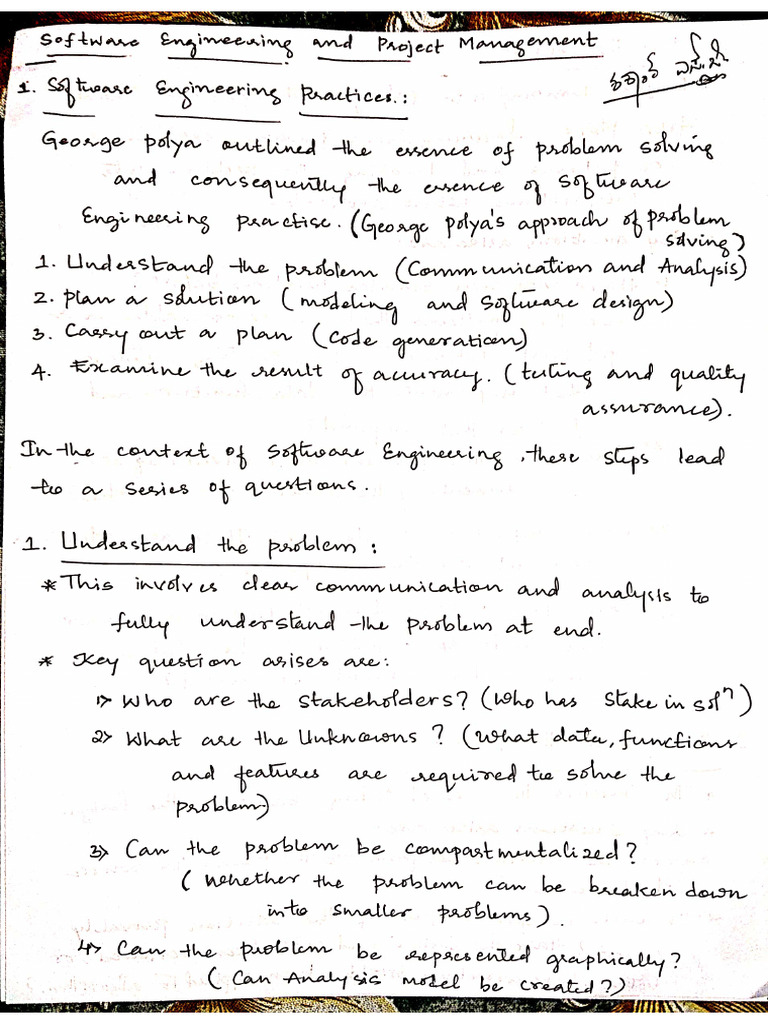 Software Engineering and Project Management
1. Software Engineering Practices:
George polya outlined the essence of problem solving
and consequently the essence of software
Engineering practise. (George polya's approach of problem
solving)
1. Understand the problem (Communication and Analysis)
2. plan a solution (modeling and software design)
3. Carry out a plan (code generation)
4. Examine the result of accuracy. (testing and quality
assurance).
In the context of software Engineering, these steps lead
to a series of questions.
1. Understand the problem:
* This involves clear communication and analysis to
fully understand the problem at end.
* Key question arises are:
1> Who are the stakeholders? (Who has stake in solⁿ)
2> What are the Unknowns? (What data, functions
and features are required to solve the
problem)
3> Can the problem be compartmentalized?
(Whether the problem can be breaken down
into smaller problems).
4> Can the problem be represented graphically?
(Can Analysis model be created?)